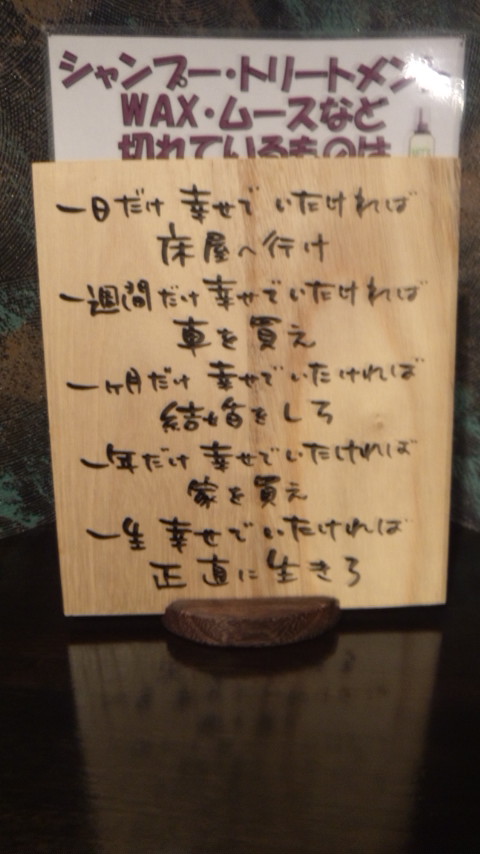 シャンプー・トリートメント
WAX・ムースなど
切れているものは
一日だけ 幸せで いたければ
床屋へ行け
一週間だけ幸せでいたければ
車を買え
一ヶ月だけ 幸せで いたければ
結婚をしろ
一年だけ 幸せでいたければ
家を買え
一生 幸せでいたければ
正直に生きろ